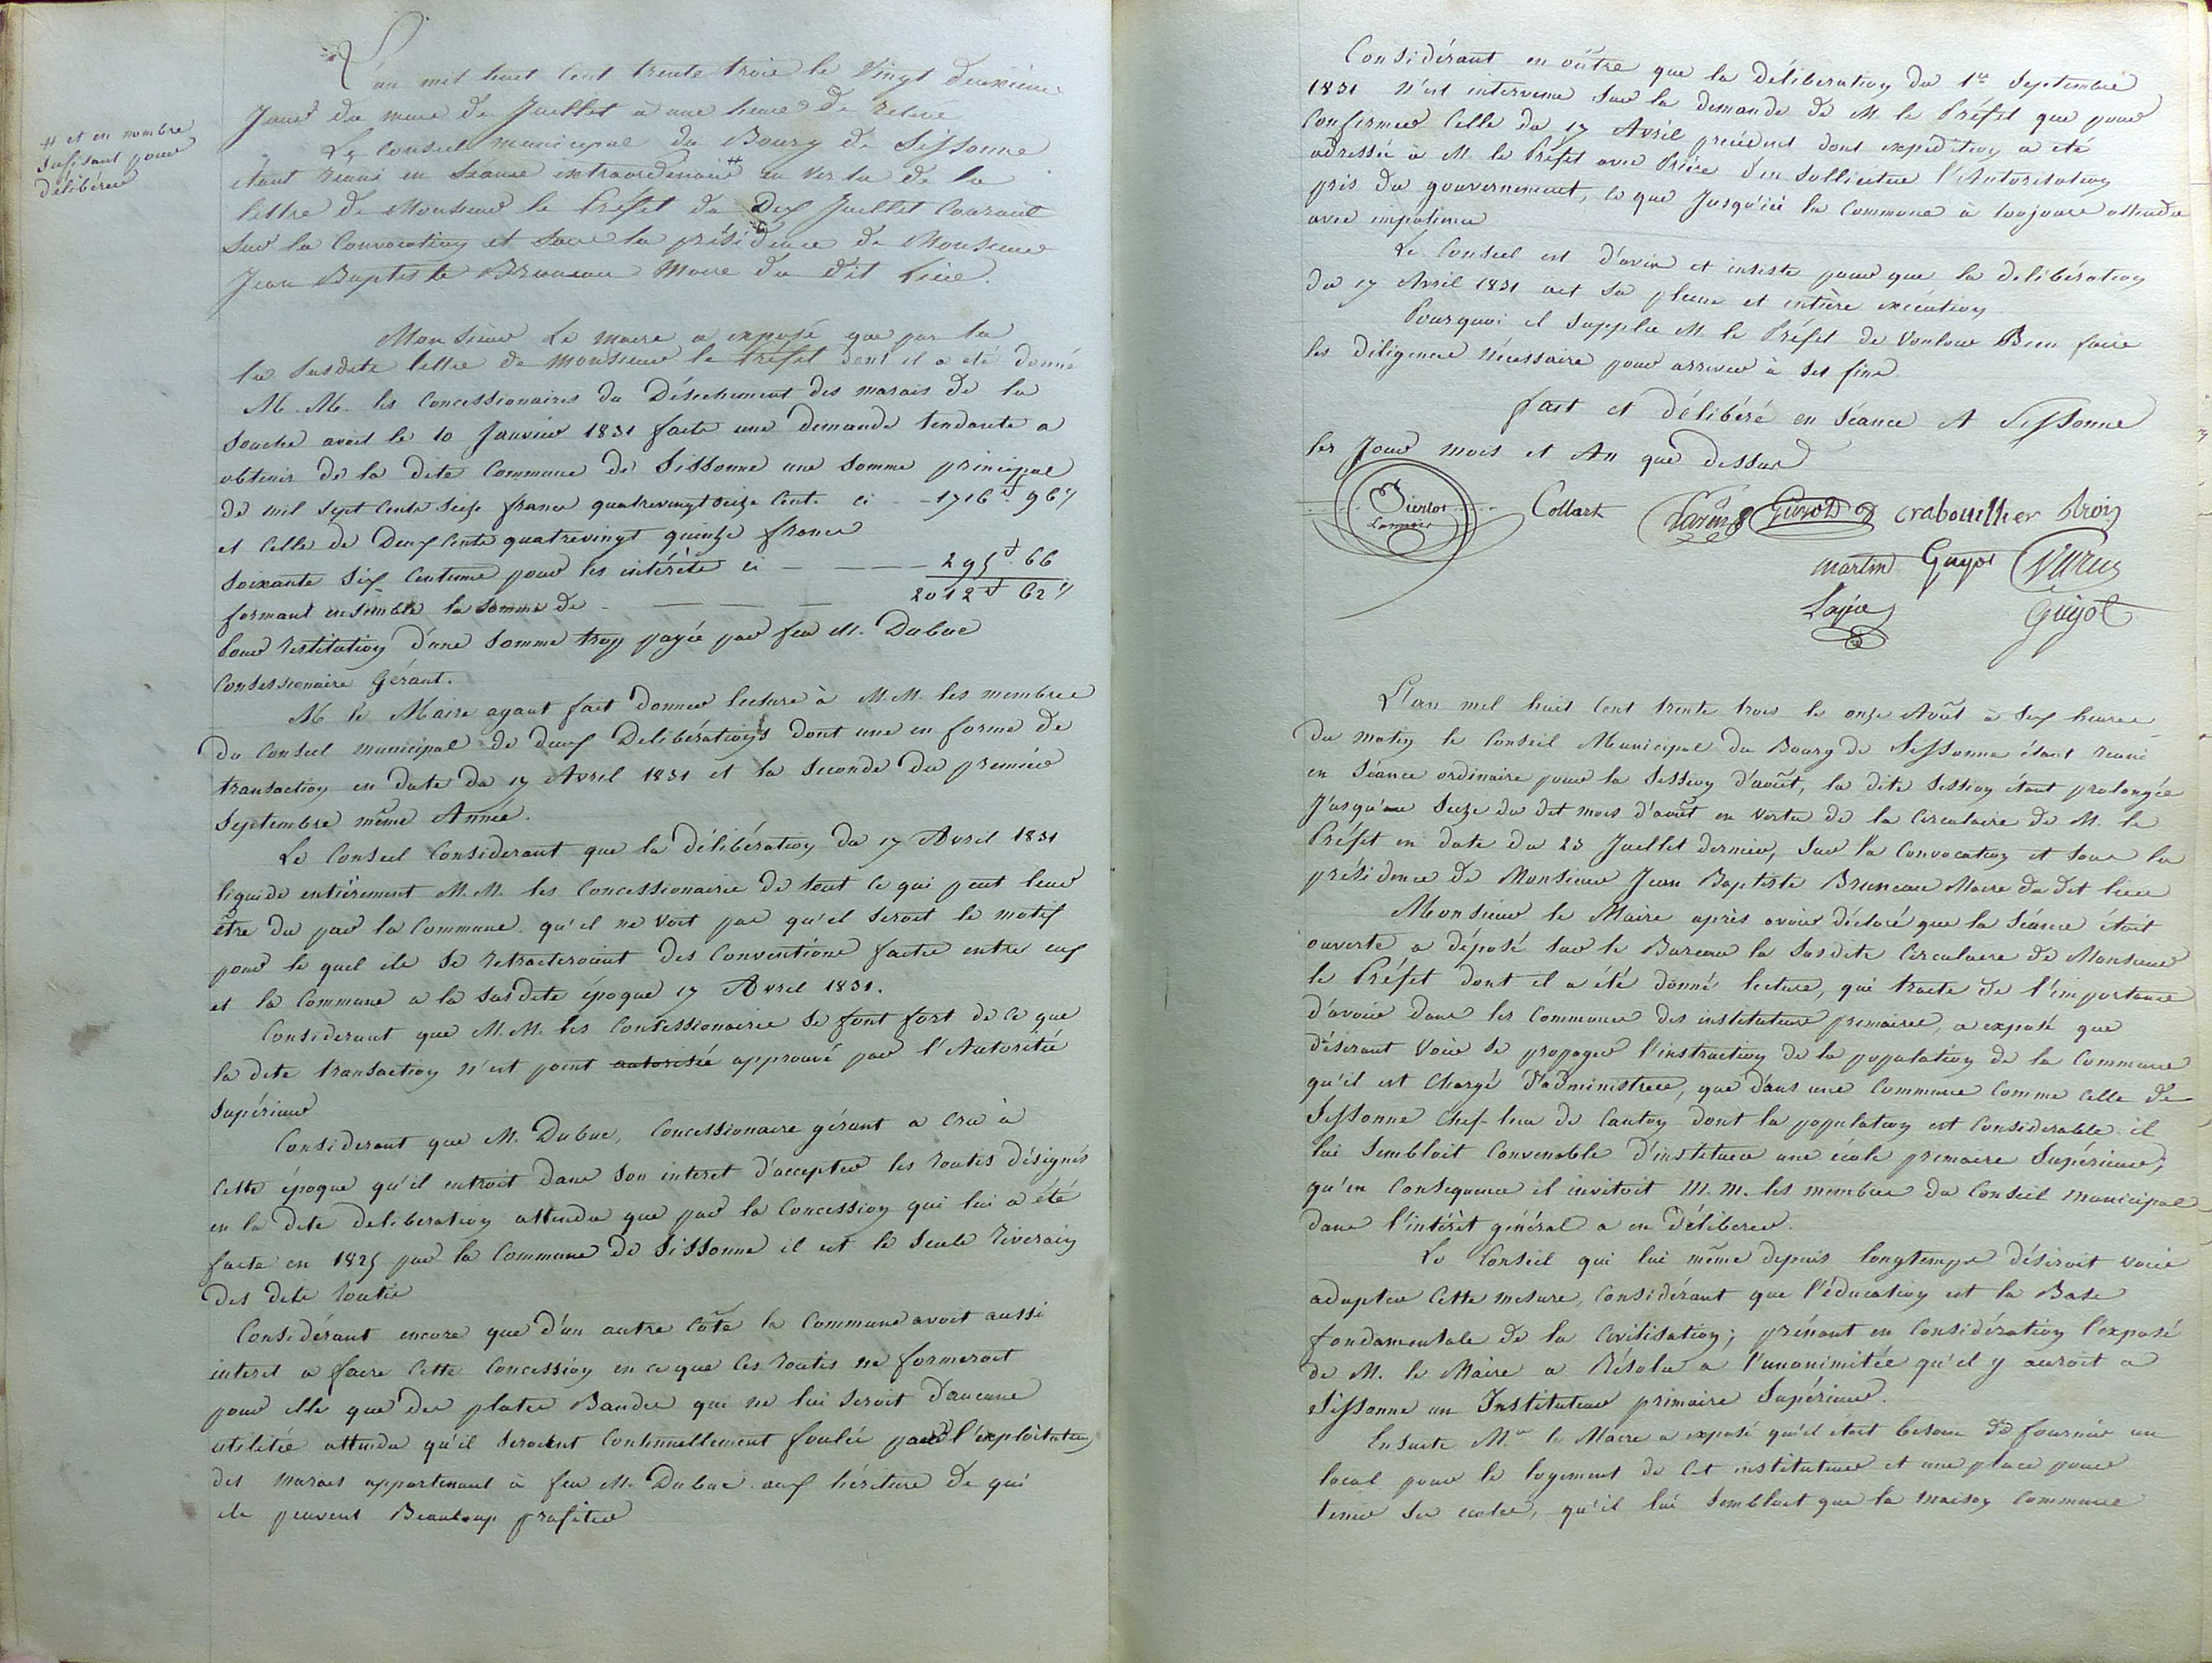 L'an mil huit Cent trente trois le Vingt deuxieme
Jour du mois de Juillet a une heure de relevé
# et en nombre
sufisant pour
délibérer
Le Conseil municipal du Bourg de Sissonne
étant réuni en Séance extraordinaire # en vertu de la
lettre de Monsieur le Préfet du Dix Juillet Courant
Sur la Convocation et sous la présidence de Monsieur
Jean Baptiste Bruneau Maire du dit Lieu.
Monsieur Le maire a exposé que par la
la susdite lettre de monsieur le Préfet dont il a été donné
M. M. les Concessionaires du Déséchement des marais de la
Souche avoit le 10 Janvier 1831 faite une demande tendante a
obtenir de la dite Commune de Sissonne une somme principal
de mil Sept Cents Seize francs quatrevingt seize Cent. ci - - 1716 f. 96 c
et Celle de Deux Cents quatrevingt quinze francs
Soixante Six Centimes pour les intérêts ci - - - - 295 f. 66
formant ensemble la Somme de - - - - 2012 f 62 c
Pour restitution d'une Somme trop payée par feu M. Dubuc
Consessionaire Gérant.
M le Maire ayant fait donner lecture à M. M. les membres
du Conseil municipal de deux Delibérations dont une en forme de
transaction en date du 17 Avril 1831 et la Seconde du premier
Septembre même Année.
Le Conseil Considerant que la délibération du 17 Avril 1831
liquide entiérement M. M. les Concessionaires de tout Ce qui peut leur
être du par la Commune. qu'il ne voit pas qu'el Seroit le motif
pour le quel ils Se retracteroient des Conventions faites entre eux
et la Commune a la Susdite époque 17 Avril 1831.
Considerant que M. M. les Consessionaires Se font fort de Ce que
la dite transaction n'est point autorisée approuvé par l'Autorité
Supérieur
Considerant que M. Dubuc, Concessionaire gérant a cru à
Cette époque qu'il entroit dans Son interet d'accepter les routes désignés
en la dite deliberation attendu que par la Concession qui lui a été
faite en 1825 par la Commune de Sissonne il est le Seule riverain
des dite routes
Considérant encore que d'un autre Côté la Commune avoit aussi
interet a faire Cette Concession en ce que les routes ne formeroit
pour elle que des plates Bandes qui ne lui Seroit d'aucune
utilitée attendu qu'il Seroient Continuellement foulée par l'exploitation
des marais appartenant à feu M. Dubuc. aux héritiers de qui
ils peuvent Beaucoup profiter
Considérant en outre que la déliberation du 1er Septembre
1831 n'est intervenu Sur la demande de M. le Préfet que pour
Confirmer Celle du 17 Avril précédent dont expédition a été
adressée à M. le Préfet avec Prière d'en Solliciter l'Autorisation
près du gouvernement, ce que Jusqu'ici la Commune à toujours attendu
avec impatience
Le Conseil est d'avis et insiste pour que la delibération
du 17 Avril 1831 ait Sa pleine et entière exécution
Pourquoi il Supplie M. le Préfet de Vouloir Bien faire
les diligence nécessaire pour arriver à Ses fins
fait et délibéré en Séance A Sissonne
les Jour mois et An que dessus
Collart Guyot Crabouillier
martin Guyot
Guyot
L'an mil huit Cent trente trois le onze Août à Six heures
du matin le Conseil Municipal du Bourg de Sissonne étant réuni
en Séance ordinaire pour la Session d'août, la dite Session étant prolongée
Jusqu'au Seize du dit mois d'août en vertu de la Circulaire de M. le
Préfet en date du 25 Juillet dernier, Sur la Convocation et Sous la
présidence de Monsieur Jean Baptiste Bruneau Maire du dit lieu
Monsieur le Maire après avoir déclaré que la Séance étoit
ouverte a déposé Sur le Bureau la Susdite Circulaire de Monsieur
le Préfet dont il a été donné lecture, qui traite de l'importance
d'avoir dans les Communes des instituteurs primaires, a exposé que
désirant Voir Se propager l'instruction de la population de la Commune
qu'il est Chargé d'administrer, que dans une Commune Comme Celle de
Sissonne Chef-lieu de Canton dont la population est Considerable il
lui Sembloit Convenable d'instituer une école primaire Supérieure,
qu'en Consequence il invitoit M. M. les membres du Conseil municipal
dans l'intérêt général a en déliberer.
Le Conseil qui lui même depuis longtemps désiroit voir
adopter Cette mesure, Considérant que l'éducation est la Base
fondamentale de la Civilisation; prénant en Considération l'exposé
de M. le Maire a Résolu a l'unanimitée qu'il y auroit a
Sissonne un Instituteur primaire Supérieur.
Ensuite M.r le Maire a exposé qu'il étoit besoin de fournir un
local pour le logement de Cet instituteur et une place pour
tenir Ses écoles, qu'il lui Sembloit que la maison Commune